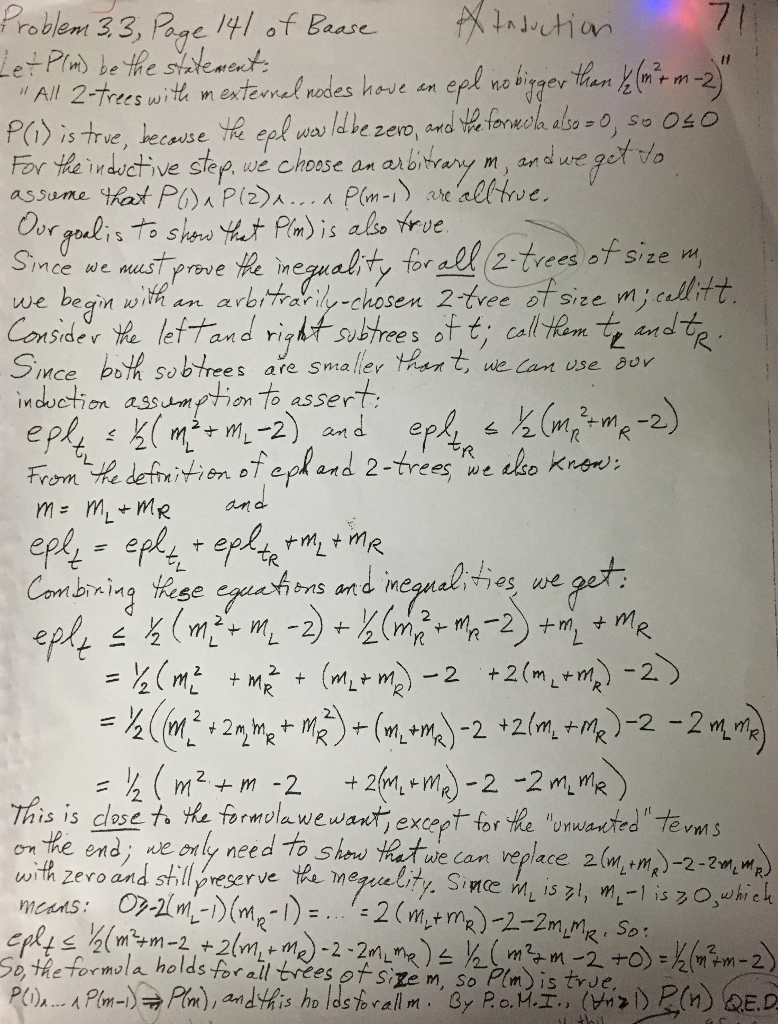 Problem 3.3, Page 141 of Baase Induction 71
Let P(m) be the statement:
"All 2-trees with m external nodes have an epl no bigger than ½(m²+m-2)"
P(1) is true, because the epl would be zero, and the formula also = 0, so 0≤0
For the inductive step, we choose an arbitrary m, and we get to
assume that P(1) ∧ P(2) ∧ ... ∧ P(m-1) are all true.
Our goal is to show that P(m) is also true.
Since we must prove the inequality for all 2-trees of size m,
we begin with an arbitrarily-chosen 2-tree of size m; call it t.
Consider the left and right subtrees of t; call them t_L and t_R.
Since both subtrees are smaller than t, we can use our
induction assumption to assert:
epl_{t_L} ≤ ½(m_L²+m_L-2) and epl_{t_R} ≤ ½(m_R²+m_R-2)
From the definition of epl and 2-trees, we also know:
m = m_L + m_R and
epl_t = epl_{t_L} + epl_{t_R} + m_L + m_R
Combining these equations and inequalities, we get:
epl_t ≤ ½(m_L²+m_L-2) + ½(m_R²+m_R-2) + m_L + m_R
= ½(m_L² + m_R² + (m_L+m_R) - 2 + 2(m_L+m_R) - 2)
= ½((m_L²+2m_Lm_R+m_R²) + (m_L+m_R) - 2 + 2(m_L+m_R) - 2 - 2m_Lm_R)
= ½(m² + m - 2 + 2(m_L+m_R) - 2 - 2m_Lm_R)
This is close to the formula we want, except for the "unwanted" terms
on the end; we only need to show that we can replace 2(m_L+m_R)-2-2m_Lm_R
with zero and still preserve the inequality. Since m_L is ≥1, m_L-1 is ≥0, which
means: 0≥-2(m_L-1)(m_R-1) = ... = 2(m_L+m_R)-2-2m_Lm_R. So:
epl_t ≤ ½(m²+m-2+2(m_L+m_R)-2-2m_Lm_R) ≤ ½(m²+m-2+0) = ½(m²+m-2)
So, the formula holds for all trees of size m, so P(m) is true.
P(1)∧...∧P(m-1) ⇒ P(m), and this holds for all m. By P.o.M.I., (∀n≥1) P(n) Q.E.D.